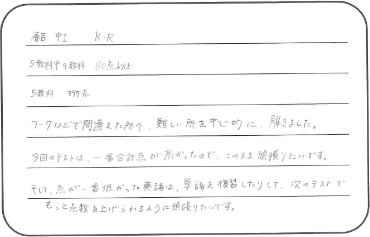 中1 K.R
5教科中4教科 80点以上
5教科 397点
ワークなどで間違えた所や、難しい所を中心的に、解きました。
今回のテストは、一番合計点が高かったので、このまま頑張りたいです。
そして、点が一番低かった英語は、単語を復習したりして、次のテストで
もっと点数を上げられるように頑張りたいです。